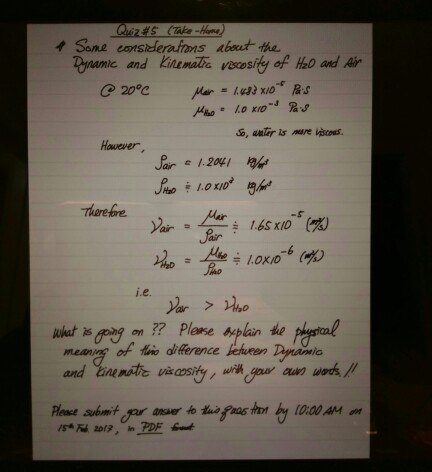 Quiz #5 (Take-Home)
Some considerations about the
Dynamic and Kinematic viscosity of H2O and Air
@ 20°C μair = 1.483 x10⁻⁵ Pa·s
μH2O = 1.0 x10⁻³ Pa·s
So, water is more viscous.
However,
ρair = 1.2041 kg/m³
ρH2O ≐ 1.0x10³ kg/m³
Therefore
νair = μair/ρair ≐ 1.65x10⁻⁵ (m²/s)
νH2O = μH2O/ρH2O ≐ 1.0x10⁻⁶ (m²/s)
i.e.
νair > νH2O
What is going on ?? Please explain the physical
meaning of this difference between Dynamic
and Kinematic viscosity, with your own words, !!
Please submit your answer to this question by 10:00 AM on
15th Feb. 2017, in PDF